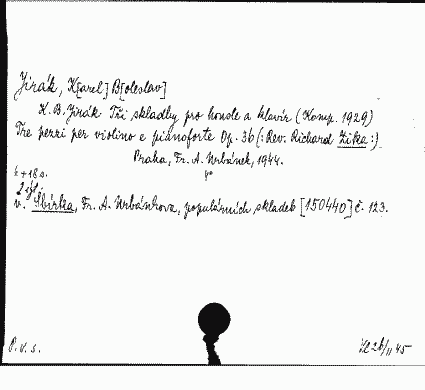 Jirák, K[arel] B[oleslav]
K. B. Jirák Tři skladby pro housle a klavír (Komp. 1929)
Tre pezzi per violino e pianoforte Op. 36 (: Rev. Richard Zika :)
Praha, Fr. A. Urbánek, 1944.
4°
½ + 18 s.
2 sýt.
v. Sbírka, Fr. A. Urbánkova, populárních skladeb [150440] č. 123.
P. v. s.
26/II 45